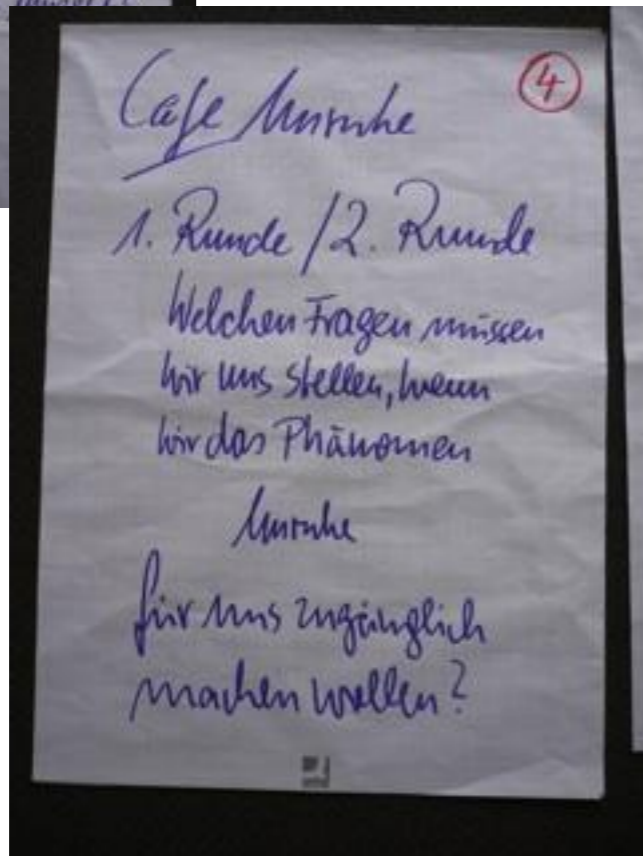 Cafe Unruhe
4
1. Runde / 2. Runde
Welchen Fragen müssen
wir uns stellen, wenn
wir das Phänomen
Unruhe
für uns zugänglich
machen wollen?